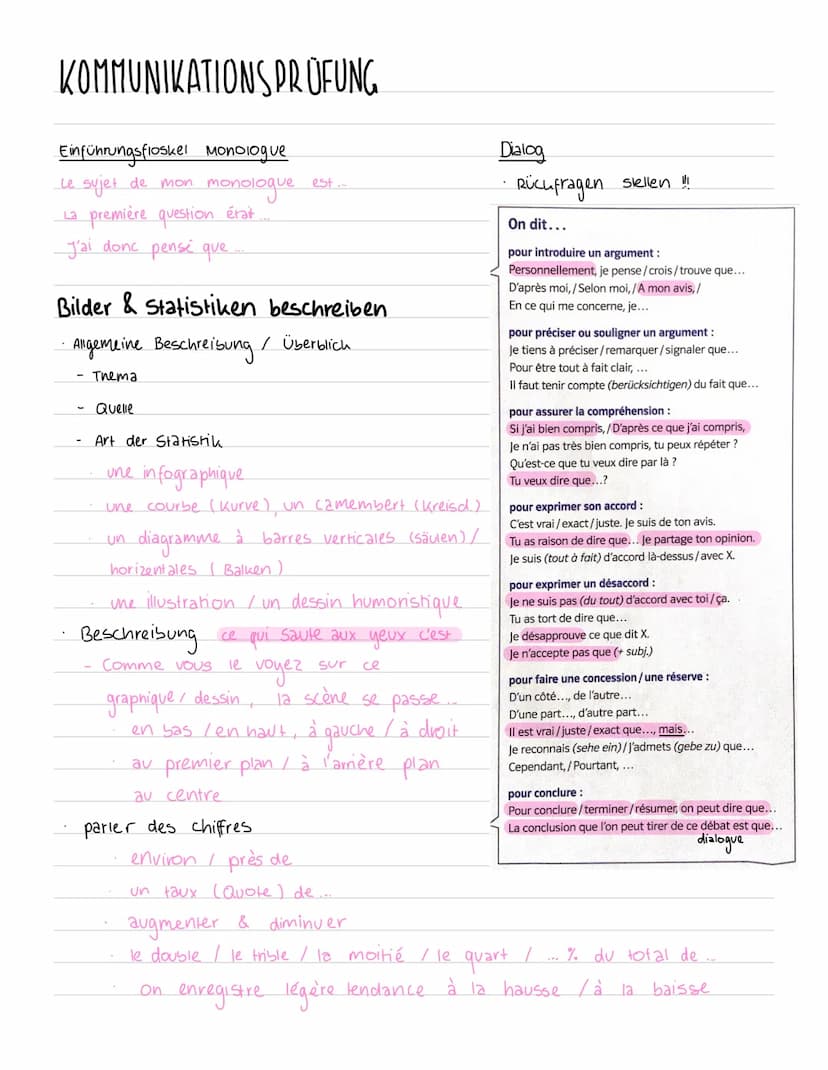 KOMMUNIKATIONSPRÜFUNG
Einführungsfloskel Monologue
Le sujet de mon monologue est ...
La première question érait ...
J'ai donc pensé que ...
Bilder & Statistiken beschreiben
· Allgemeine Beschreibung / Überblick
- Thema
- Quelle
- Art der Statistik
· une infographique
· une courbe (Kurve), un camembert (Kreisd.)
· un diagramme à barres verticales (Säulen) /
horizentales (Balken)
· une illustration / un dessin humoristique
· Beschreibung ce qui saute aux yeux c'est
- Comme vous le voyez sur ce
graphique / dessin, la scène se passe ...
· en bas / en haut, à gauche / à droit
· au premier plan / à l'arrière plan
au centre
· parler des chiffres
· environ / près de
· un taux (Quote) de ...
· augmenter & diminuer
· le double / le trible / la moitié / le quart / ... % du total de ...
· on enregistre légère tendance à la hausse / à la baisse
Dialog
· Rückfragen stellen !!!
On dit...
pour introduire un argument :
Personnellement, je pense / crois / trouve que...
D'après moi, / Selon moi, / A mon avis, /
En ce qui me concerne, je...
pour préciser ou souligner un argument :
Je tiens à préciser / remarquer / signaler que...
Pour être tout à fait clair, ...
Il faut tenir compte (berücksichtigen) du fait que...
pour assurer la compréhension :
Si j'ai bien compris, / D'après ce que j'ai compris,
Je n'ai pas très bien compris, tu peux répéter ?
Qu'est-ce que tu veux dire par là ?
Tu veux dire que...?
pour exprimer son accord :
C'est vrai / exact / juste. Je suis de ton avis.
Tu as raison de dire que... Je partage ton opinion.
Je suis (tout à fait) d'accord là-dessus / avec X.
pour exprimer un désaccord :
Je ne suis pas (du tout) d'accord avec toi / ça.
Tu as tort de dire que...
Je désapprouve ce que dit X.
Je n'accepte pas que (+ subj.)
pour faire une concession / une réserve :
D'un côté..., de l'autre...
D'une part..., d'autre part...
Il est vrai / juste / exact que..., mais...
Je reconnais (sehe ein) / J'admets (gebe zu) que...
Cependant, / Pourtant, ...
pour conclure :
Pour conclure / terminer / résumer, on peut dire que...
La conclusion que l'on peut tirer de ce débat est que...
dialogue